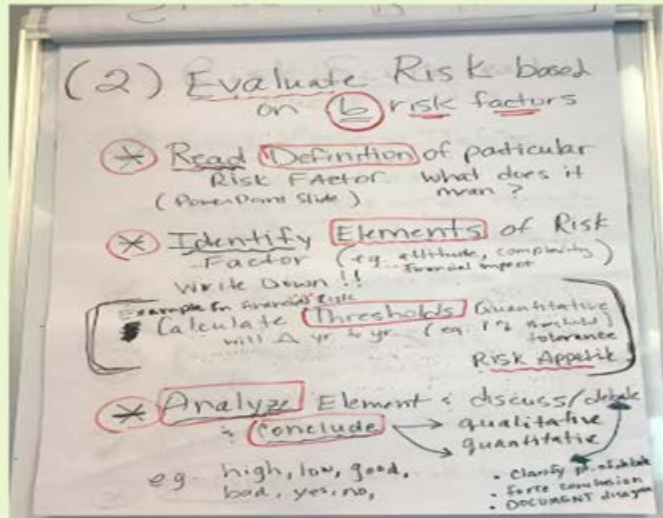 (2) Evaluate Risk based
on 6 risk factors
* Read Definition of particular
Risk FActor. What does it
(PowerPoint Slide) mean?
* Identify Elements of Risk
Factor (eg. attitude, complexity,
financial impact)
Write Down!!
Example for Financial Risk
Calculate Thresholds Quantitative
will Δ yr. to yr. (eg. 1% threshold)
tolerance
Risk Appetite
* Analyze Element & discuss/debate
& Conclude → qualitative
→ quantitative
eg. high, low, good,
bad, yes, no,
• Clarify pt. of debate
• force conclusion
• DOCUMENT